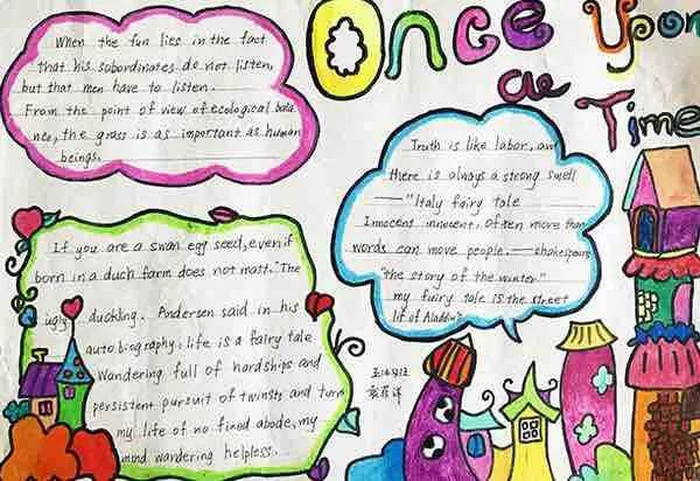 Once Upon
a
Time
When the fun lies in the fact
that his subordinates do not listen,
but that men have to listen.
From the point of view of ecological bala
nce, the grass is as important as human
beings.
Truth is like labor, and
there is always a strong smell
——"Italy fairy tale
Innocent innocent, often more than
words can move people.——shakespears
"the story of the winter"
my fairy tale is the street
lif of Aladdin's
If you are a swan egg seed, even if
born in a duch farm does not matt." The
ugly duckling. Andersen said in his
autobiography: life is a fairy tale
Wandering full of hardships and
persistent pursuit of twinsts and turn
my life of no fixed abode, my
mind wandering helpless.